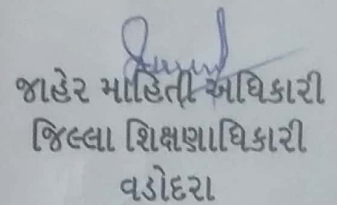 જાહેર માહિતી અધિકારી
જિલ્લા શિક્ષણાધિકારી
વડોદરા